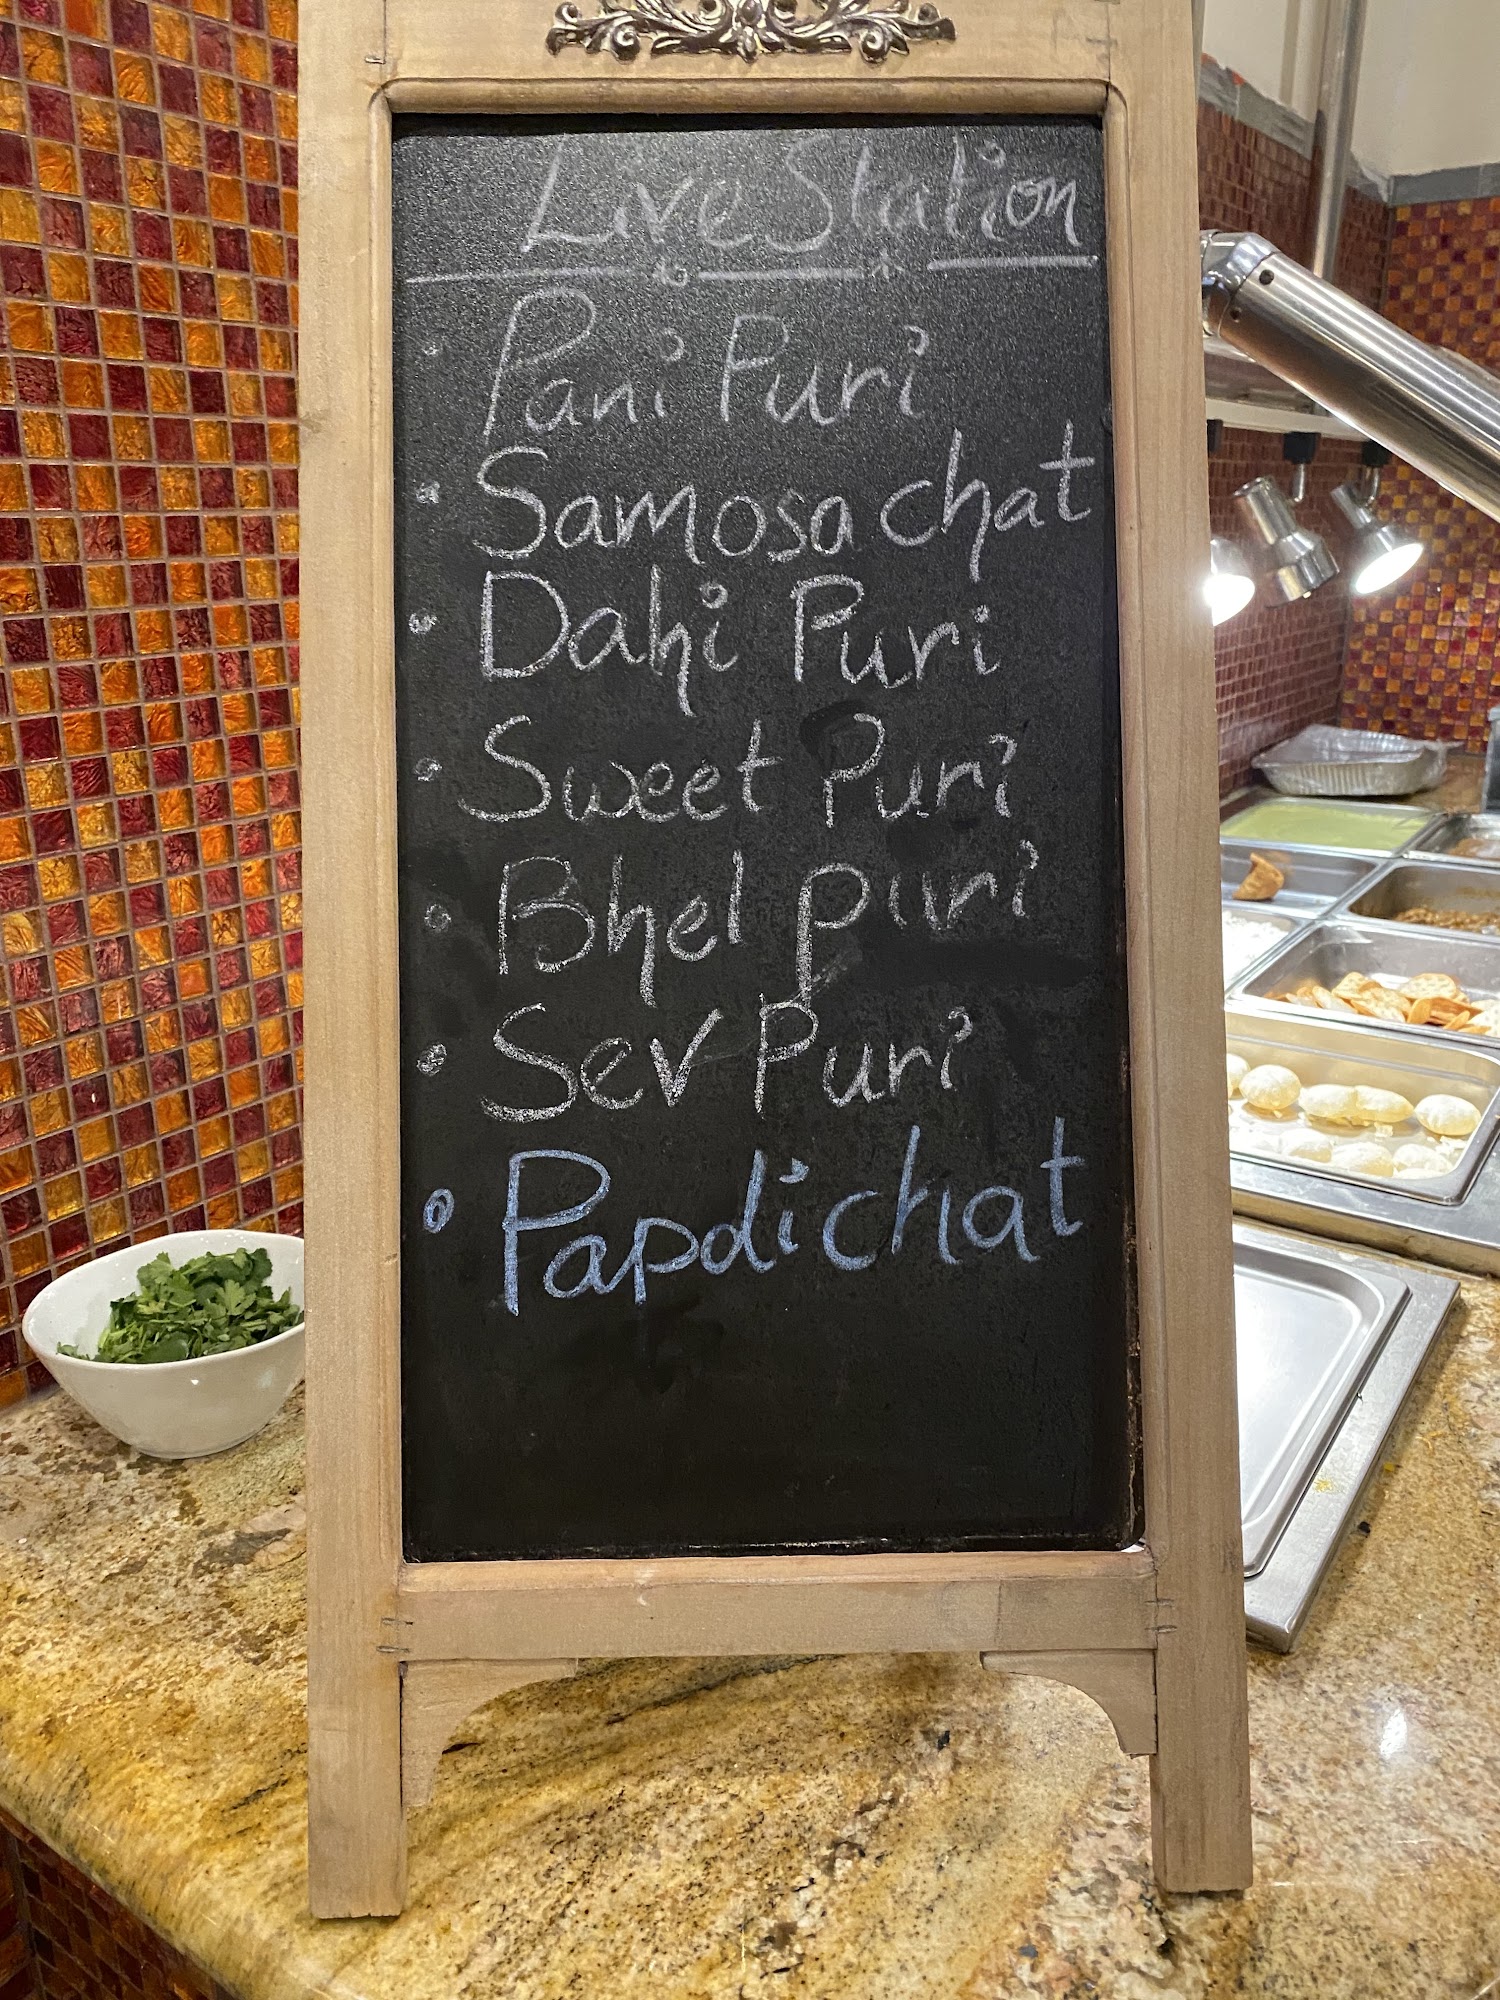 Live Station
Pani Puri
Samosa chat
Dahi Puri
Sweet Puri
Bhel puri
Sev Puri
Papdi chat